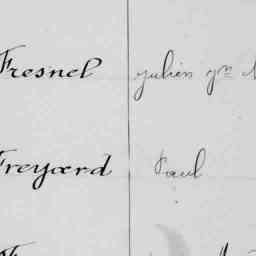 Fresnel julien yn
Freyard Paul